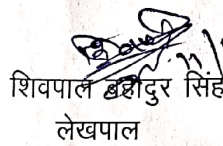 शिवपाल बहादुर सिंह
लेखपाल